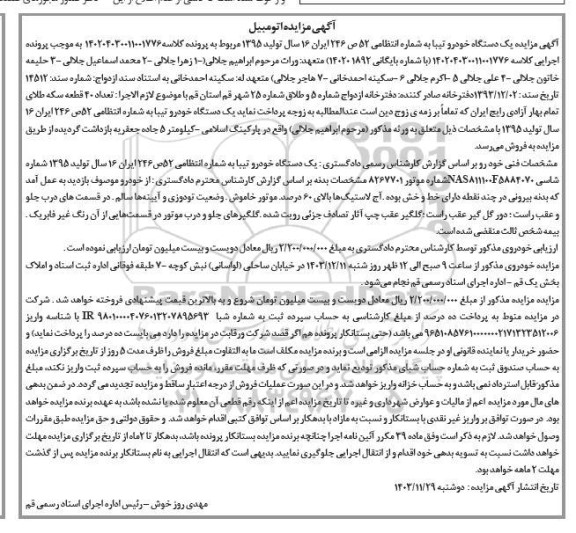 آگهی مزایده اتومبیل
آگهی مزایده یک دستگاه خودرو تیبا به شماره انتظامی ۵۲ ص ۲۴۶ ایران ۱۶ سال تولید ۱۳۹۵ مربوط به پرونده کلاسه ۱۴۰۲۰۴۰۳۰۰۱۱۰۰۱۷۷۶ به موجب پرونده
اجرایی کلاسه ۱۴۰۲۰۴۰۳۰۰۱۱۰۰۱۷۷۶ (با شماره بایگانی ۱۴۰۲۰۱۸۹۲) متعهد: وراث مرحوم ابراهیم جلالی(۱- زهرا جلالی ۲- محمد اسماعیل جلالی ۳- حلیمه
خاتون جلالی ۴- علی جلالی ۵ -اکرم جلالی ۶ -سکینه احمدخانی ۷- هاجر جلالی) متعهد له: سکینه احمدخانی به استناد سند ازدواج: شماره سند: ۱۴۵۱۲
تاریخ سند : ۱۳۹۳/۱۲/۰۲ دفترخانه صادر کننده: دفترخانه ازدواج شماره ۵ و طلاق شماره ۲۵ شهر قم استان قم با موضوع لازم الاجرا : تعداد ۴۰ قطعه سکه طلای
تمام بهار آزادی رایج ایران که تماماً بر زمه ی زوج دین است عندالمطالبه به زوجه پرداخت نماید یک دستگاه خودرو تیبا به شماره انتظامی ۵۲ ص ۲۴۶ ایران ۱۶
سال تولید ۱۳۹۵ با مشخصات ذیل متعلق به ورثه مذکور (مرحوم ابراهیم جلالی) واقع در پارکینگ اسلامی –کیلومتر ۵ جاده جعفریه بازداشت گردیده از طریق
مزایده به فروش می رسد.
مشخصات فنی خودرو بر اساس گزارش کارشناس رسمی دادگستری : یک دستگاه خودرو تیبا به شماره انتظامی ۵۲ص۲۴۶ ایران ۱۶ سال تولید ۱۳۹۵ شماره
شاسی NAS۸۱۱۱۰۰F۵۸۸۴۰۷۰ شماره موتور ۸۲۶۷۷۰۱ مشخصات بدنه بر اساس گزارش کارشناس محترم دادگستری : از خودرو موصوف بازدید به عمل آمد
که بدنه بیرونی در چند نقطه دارای خط و خش بوده .آج لاستیک‌ها بالای ۶۰ درصد. موتور خاموش . وضعیت تودوزی و آیینه‌ها سالم . در قسمت های درب جلو
و عقب راست ؛ دور گل گیر عقب راست ؛گلگیر عقب چپ آثار تصادف جزئی رویت شده .گلگیرهای جلو و درب موتور در قسمت‌هایی از آن رنگ غیر فابریک .
بیمه شخص ثالث منقضی شده است.
ارزیابی خودروی مذکور توسط کارشناس محترم دادگستری به مبلغ ۲/۲۰۰/۰۰۰/۰۰۰ ریال معادل دویست و بیست میلیون تومان ارزیابی نموده است .
مزایده خودروی مذکور از ساعت ۹ صبح الی ۱۲ ظهر روز شنبه ۱۴۰۳/۱۲/۱۱ در خیابان ساحلی (لواسانی) نبش کوچه ۷- طبقه فوقانی اداره ثبت اسناد و املاک
بخش یک قم – اداره اجرای اسناد رسمی قم نجام می شود .
مزایده مزایده مذکور از مبلغ ۲/۲۰۰/۰۰۰/۰۰۰ ریال معادل دویست و بیست میلیون تومان شروع و به بالاترین قیمت پیشنهادی فروخته خواهد شد . شرکت
در مزایده منوط به پرداخت ده درصد از مبلغ کارشناسی به حساب سپرده ثبت به شماره شبا IR ۹۸۰۱۰۰۰۰۴۰۷۶۰۱۳۲۰۷۸۹۵۶۹۳ با شناسه واریز
۹۶۵۱۰۸۵۷۶۱۰۰۰۰۰۰۰۲۱۷۱۳۲۳۵۱۲۰۰۶ می باشد (حتی بستانکار پرونده هم اگر قصد شرکت و رقابت در مزایده را دارد می بایست ده درصد را پرداخت نماید) و
حضور خریدار یا نماینده قانونی او در جلسه مزایده الزامی است و برنده مزایده مکلف است ما به التفاوت مبلغ فروش را ظرف مدت ۵ روز از تاریخ برگزاری مزایده
به حساب صندوق ثبت به شماره حساب شبای مذکور تودیع نماید و در صورتی که ظرف مهلت مقرر، مانده فروش را به حساب سپرده ثبت واریز نکند، مبلغ
مذکور قابل استرداد نمی باشد و به حساب خزانه واریز خواهد شد. و در این صورت عملیات فروش از درجه اعتبار ساقط و مزایده تجدید می گردد. در ضمن بدهی
های مال مورد مزایده اعم از مالیات و عوارض شهرداری و غیره تا تاریخ مزایده اعم از اینکه رقم قطعی آن معلوم شده یا نشده باشد به عهده برنده مزایده خواهد
بود. در صورت توافق بر واریز غیر نقدی با بستانکار و نسبت به مازاد با بدهکار بر اساس توافق کتبی اقدام خواهد شد. و حقوق دولتی و حق مزایده طبق مقررات
وصول خواهد شد. لازم به ذکر است وفق ماده ۳۹ مکرر آئین نامه اجرا چنانچه برنده مزایده بستانکار پرونده باشد، بدهکار تا ۲ماه از تاریخ برگزاری مزایده مهلت
خواهد داشت نسبت به تسویه بدهی خود اقدام و از انتقال اجرایی جلوگیری نمایید. بدیهی است که انتقال اجرایی به نام بستانکار برنده مزایده پس از گذشت
مهلت ۲ ماهه خواهد بود.
تاریخ انتشار آگهی مزایده : دوشنبه ۱۴۰۳/۱۱/۲۹
مهدی روز خوش – رئیس اداره اجرای اسناد رسمی قم